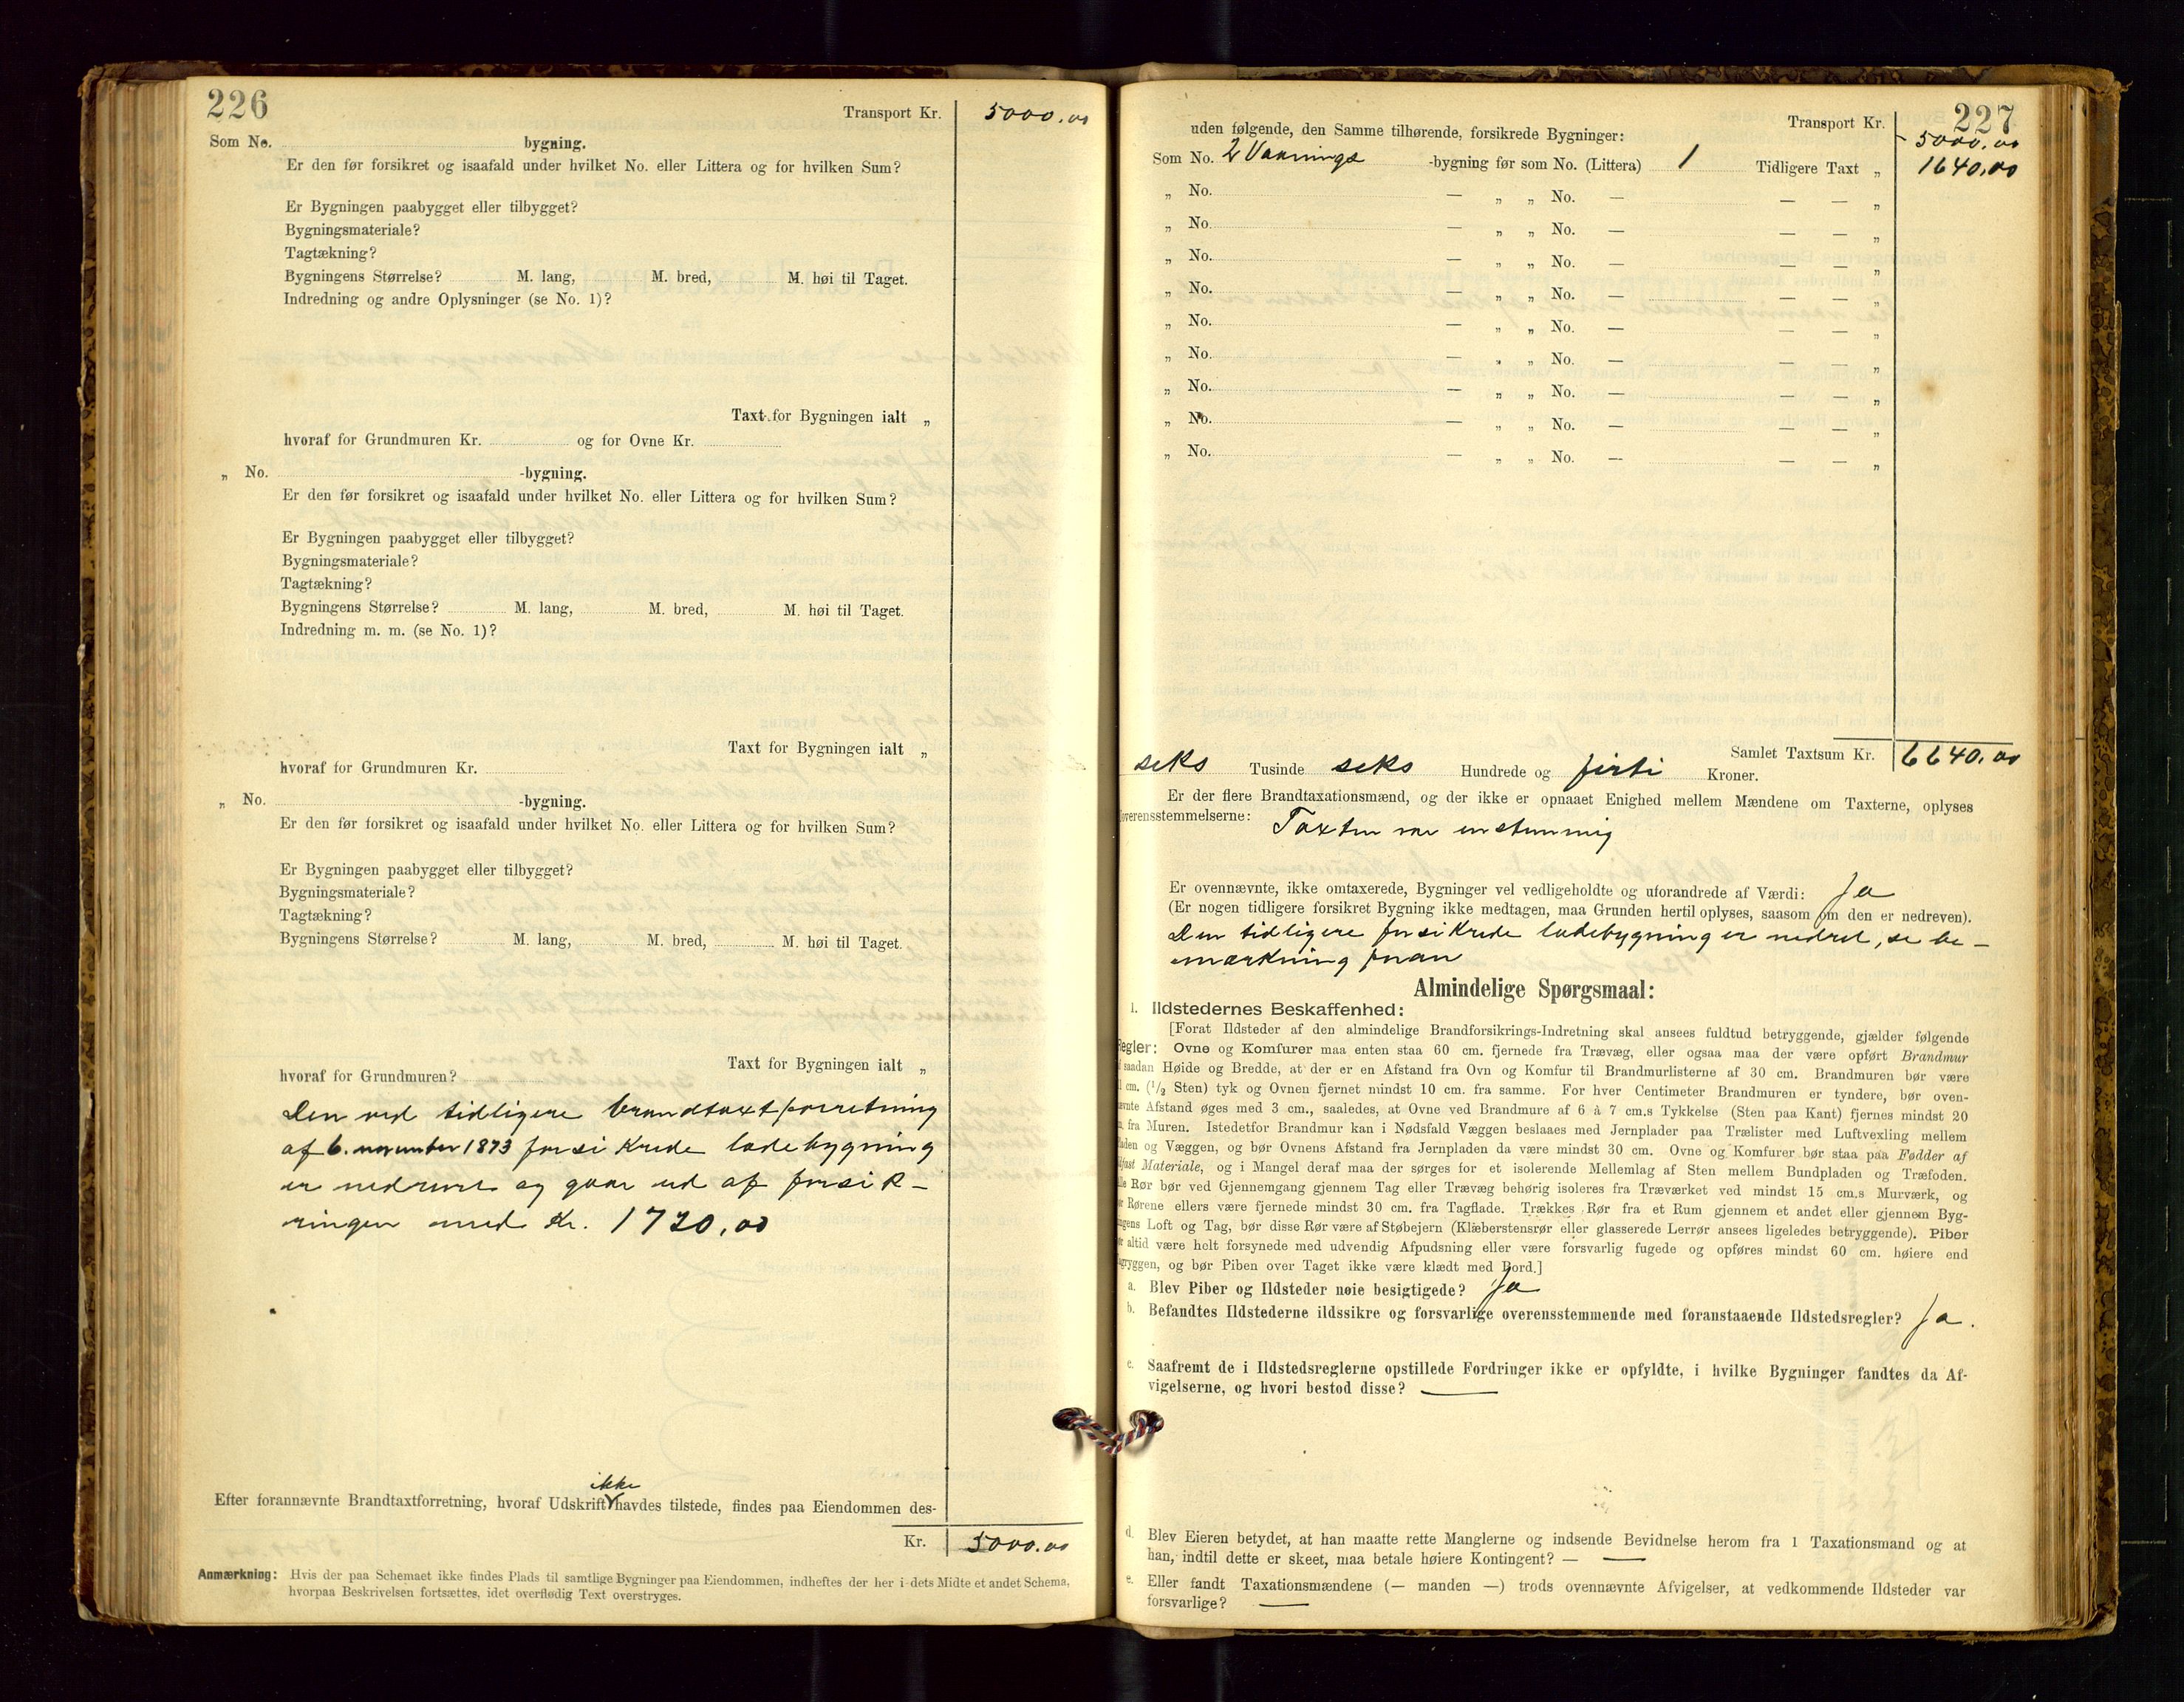 226
Transport Kr. 5000.00
Som No. bygning.
Er den før forsikret og isaafald under hvilket No. eller Littera og for hvilken Sum?
Er Bygningen paabygget eller tilbygget?
Bygningsmateriale?
Tagtækning?
Bygningens Størrelse? M. lang, M. bred, M. høi til Taget.
Indredning og andre Oplysninger (se No. 1)?
Taxt for Bygningen ialt „
hvoraf for Grundmuren Kr. og for Ovne Kr.
„ No. -bygning.
Er den før forsikret og isaafald under hvilket No. eller Littera og for hvilken Sum?
Er Bygningen paabygget eller tilbygget?
Bygningsmateriale?
Tagtækning?
Bygningens Størrelse? M. lang, M. bred, M. høi til Taget.
Indredning m. m. (se No. 1)?
Taxt for Bygningen ialt „
hvoraf for Grundmuren Kr.
„ No. -bygning.
Er den før forsikret og isaafald under hvilket No. eller Littera og for hvilken Sum?
Er Bygningen paabygget eller tilbygget?
Bygningsmateriale?
Tagtækning?
Bygningens Størrelse? M. lang, M. bred, M. høi til Taget.
Taxt for Bygningen ialt „
hvoraf for Grundmuren?
Den ved tidligere brandtaxtforretning
af 6. november 1873 forsikrede ladebygning
er nedrevet og gaar ud af forsik-
ringen med Kr. 1720,00
ikke
Efter forannævnte Brandtaxtforretning, hvoraf Udskrift havdes tilstede, findes paa Eiendommen des-
Kr. 5000.00
Anmærkning: Hvis der paa Schemaet ikke findes Plads til samtlige Bygninger paa Eiendommen, indheftes der her i dets Midte et andet Schema,
hvorpaa Beskrivelsen fortsættes, idet overflødig Text overstryges.
227
Transport Kr. 5000.00
uden følgende, den Samme tilhørende, forsikrede Bygninger:
Som No. 2 Vaanings -bygning før som No. (Littera) 1 Tidligere Taxt „ 1640,00
„ No. — „ „ No. — — — „
„ No. — „ „ No. — — — „
„ No. — „ „ No. — — — „
„ No. — „ „ No. — — — „
„ No. — „ „ No. — — — „
„ No. — „ „ No. — — — „
„ No. — „ „ No. — — — „
„ No. — „ „ No. — — — „
„ No. — „ „ No. — — — „
Samlet Taxtsum Kr. 6640.00
seks Tusinde seks Hundrede og firti Kroner.
Er der flere Brandtaxationsmænd, og der ikke er opnaaet Enighed mellem Mændene om Taxterne, oplyses
overensstemmelserne: Taxten var enstemmig
Er ovennævnte, ikke omtaxerede, Bygninger vel vedligeholdte og uforandrede af Værdi: Ja
(Er nogen tidligere forsikret Bygning ikke medtagen, maa Grunden hertil oplyses, saasom om den er nedreven).
Den tidligere forsikrede ladebygning er nedret, se be-
mærkning foran
Almindelige Spørgsmaal:
1. Ildstedernes Beskaffenhed:
[Forat Ildsteder af den almindelige Brandforsikrings-Indretning skal ansees fuldtud betryggende, gjælder følgende
Regler: Ovne og Komfurer maa enten staa 60 cm. fjernede fra Trævæg, eller ogsaa maa der være opført Brandmur
saadan Høide og Bredde, at der er en Afstand fra Ovn og Komfur til Brandmurlisterne af 30 cm. Brandmuren bør være
cm. (1/2 Sten) tyk og Ovnen fjernet mindst 10 cm. fra samme. For hver Centimeter Brandmuren er tyndere, bør oven-
nævnte Afstand øges med 3 cm., saaledes, at Ovne ved Brandmure af 6 à 7 cm.s Tykkelse (Sten paa Kant) fjernes mindst 20
fra Muren. Istedetfor Brandmur kan i Nødsfald Væggen beslaaes med Jernplader paa Trælister med Luftvexling mellem
Pladen og Væggen, og bør Ovnens Afstand fra Jernpladen da være mindst 30 cm. Ovne og Komfurer bør staa paa Fødder af
ildfast Materiale, og i Mangel deraf maa der sørges for et isolerende Mellemlag af Sten mellem Bundpladen og Træfoden.
Alle Rør bør ved Gjennemgang gjennem Tag eller Trævæg behørig isoleres fra Træværket ved mindst 15 cm.s Murværk, og
Rørene ellers være fjernede mindst 30 cm. fra Tagflade. Trækkes Rør fra et Rum gjennem et andet eller gjennem Byg-
ningens Loft og Tag, bør disse Rør være af Støbejern (Klæberstensrør eller glasserede Lerrør ansees ligeledes betryggende). Piber
altid være helt forsynede med udvendig Afpudsning eller være forsvarlig fugede og opføres mindst 60 cm. høiere end
Tagryggen, og bør Piben over Taget ikke være klædt med Bord.]
a. Blev Piber og Ildsteder nøie besigtigede? Ja
b. Befandtes Ildstederne ildssikre og forsvarlige overensstemmende med foranstaaende Ildstedsregler? Ja.
c. Saafremt de i Ildstedsreglerne opstillede Fordringer ikke er opfyldte, i hvilke Bygninger fandtes da Af-
vigelserne, og hvori bestod disse? —
d. Blev Eieren betydet, at han maatte rette Manglerne og indsende Bevidnelse herom fra 1 Taxationsmand og at
han, indtil dette er skeet, maa betale høiere Kontingent? — —
e. Eller fandt Taxationsmændene (— manden —) trods ovennævnte Afvigelser, at vedkommende Ildsteder var
forsvarlige? —